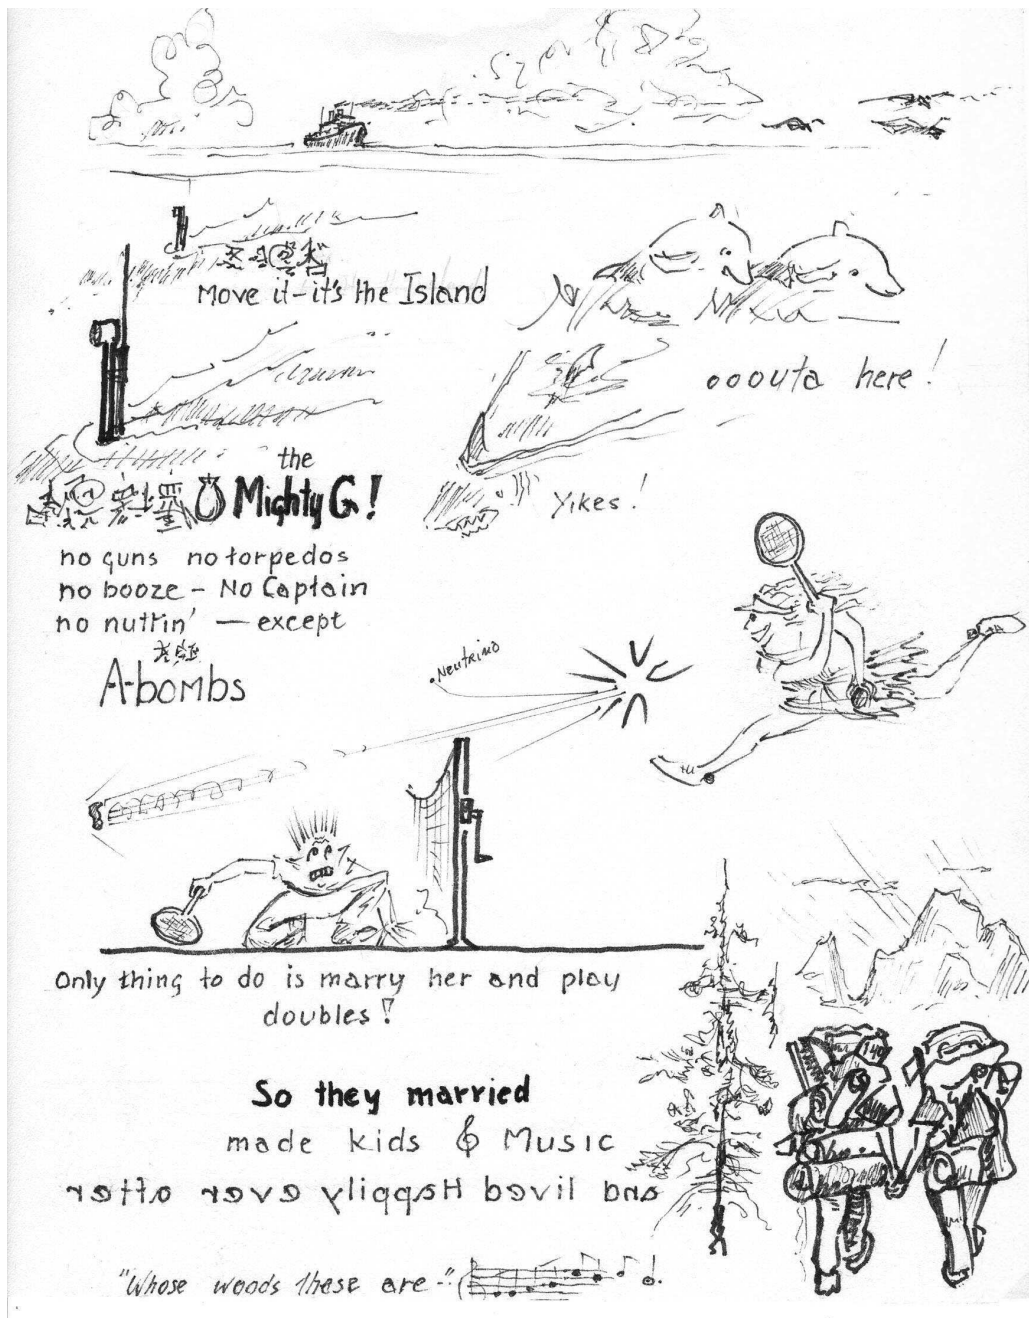 Move it-it's the Island
ooouta here!
the
Mighty G!
Yikes!
no guns no torpedos
no booze - No Captain
no nuttin' — except
A-bombs
Neutrino
Only thing to do is marry her and play
doubles!
So they married
made kids & Music
and lived Happily ever after
"Whose woods these are -"